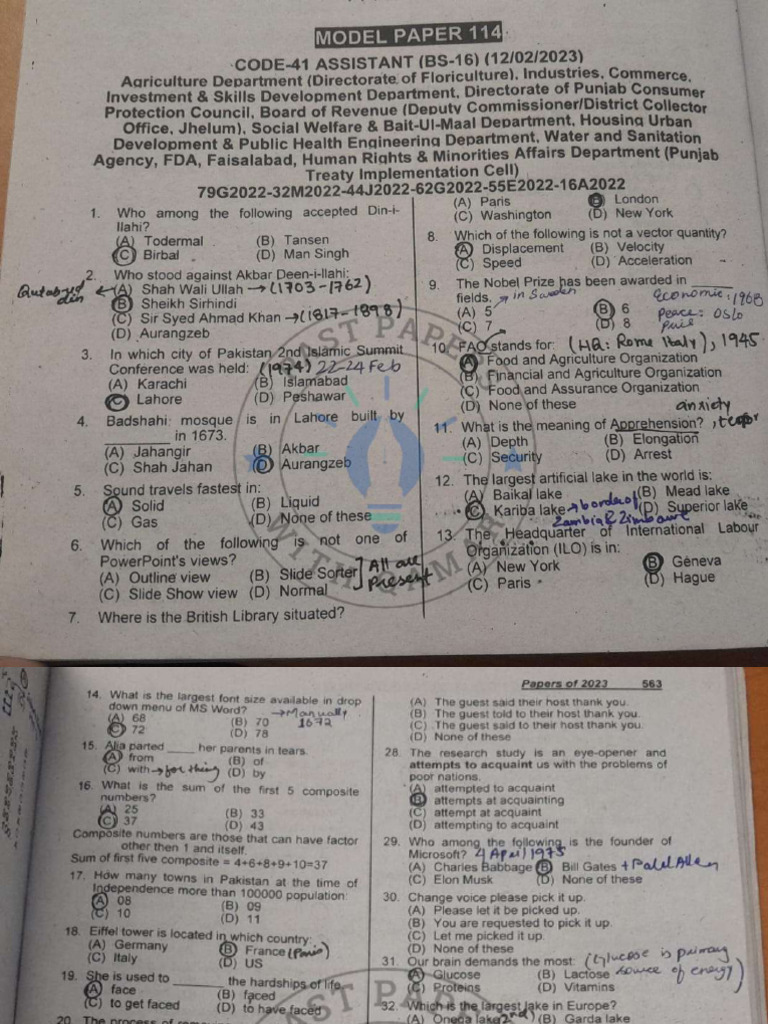 MODEL PAPER 114
CODE-41 ASSISTANT (BS-16) (12/02/2023)
Agriculture Department (Directorate of Floriculture), Industries, Commerce,
Investment & Skills Development Department, Directorate of Punjab Consumer
Protection Council, Board of Revenue (Deputy Commissioner/District Collector
Office, Jhelum), Social Welfare & Bait-Ul-Maal Department, Housing Urban
Development & Public Health Engineering Department, Water and Sanitation
Agency, FDA, Faisalabad, Human Rights & Minorities Affairs Department (Punjab
Treaty Implementation Cell)
79G2022-32M2022-44J2022-62G2022-55E2022-16A2022
1. Who among the following accepted Din-i-
Ilahi?
(A) Todermal (B) Tansen
(C) Birbal (D) Man Singh
2. Who stood against Akbar Deen-i-Ilahi:
Qutabud din (A) Shah Wali Ullah → (1703-1762)
(B) Sheikh Sirhindi
(C) Sir Syed Ahmad Khan → (1817-1898)
(D) Aurangzeb
3. In which city of Pakistan 2nd Islamic Summit
Conference was held: (1974) 22-24 Feb
(A) Karachi (B) Islamabad
(C) Lahore (D) Peshawar
4. Badshahi mosque is in Lahore built by
________ in 1673.
(A) Jahangir (B) Akbar
(C) Shah Jahan (D) Aurangzeb
5. Sound travels fastest in:
(A) Solid (B) Liquid
(C) Gas (D) None of these
6. Which of the following is not one of
PowerPoint's views?
(A) Outline view (B) Slide Sorter
(C) Slide Show view (D) Normal
All are present
7. Where is the British Library situated?
(A) Paris (B) London
(C) Washington (D) New York
8. Which of the following is not a vector quantity?
(A) Displacement (B) Velocity
(C) Speed (D) Acceleration
9. The Nobel Prize has been awarded in _____
fields. → in Sweden Economic: 1968
(A) 5 (B) 6 Peace: Oslo
(C) 7 (D) 8
10. FAO stands for: (HQ: Rome Italy), 1945
(A) Food and Agriculture Organization
(B) Financial and Agriculture Organization
(C) Food and Assurance Organization
(D) None of these anxiety
11. What is the meaning of Apprehension?
(A) Depth (B) Elongation
(C) Security (D) Arrest
12. The largest artificial lake in the world is:
(A) Baikal lake (B) Mead lake
(C) Kariba lake → border of (D) Superior lake
Zambia & Zimbabwe
13. The Headquarter of International Labour
Organization (ILO) is in:
(A) New York (B) Geneva
(C) Paris (D) Hague
PAST PAPERS WITH QAMAR
Papers of 2023 563
14. What is the largest font size available in drop
down menu of MS Word? → Manually
(A) 68 (B) 70 1672
(C) 72 (D) 78
15. Alia parted ____ her parents in tears.
(A) from (B) of
(C) with → for thing (D) by
16. What is the sum of the first 5 composite
numbers?
(A) 25 (B) 33
(C) 37 (D) 43
Composite numbers are those that can have factor
other then 1 and itself.
Sum of first five composite = 4+6+8+9+10=37
17. How many towns in Pakistan at the time of
Independence more than 100000 population:
(A) 08 (B) 09
(C) 10 (D) 11
18. Eiffel tower is located in which country:
(A) Germany (B) France (Paris)
(C) Italy (D) US
19. She is used to ________ the hardships of life.
(A) face (B) faced
(C) to get faced (D) to have faced
20. The process of
(A) The guest said their host thank you.
(B) The guest told to their host thank you.
(C) The guest said to their host thank you.
(D) None of these
28. The research study is an eye-opener and
attempts to acquaint us with the problems of
poor nations.
(A) attempted to acquaint
(B) attempts at acquainting
(C) attempt at acquaint
(D) attempting to acquaint
29. Who among the following is the founder of
Microsoft? 4 April 1975
(A) Charles Babbage (B) Bill Gates + Paul Allen
(C) Elon Musk (D) None of these
30. Change voice please pick it up.
(A) Please let it be picked up.
(B) You are requested to pick it up.
(C) Let me picked it up.
(D) None of these
31. Our brain demands the most: (Glucose is primary
(A) Glucose (B) Lactose source of energy)
(C) Proteins (D) Vitamins
32. Which is the largest lake in Europe?
(A) Onega lake 2nd (B) Garda lake
PAST PAPERS